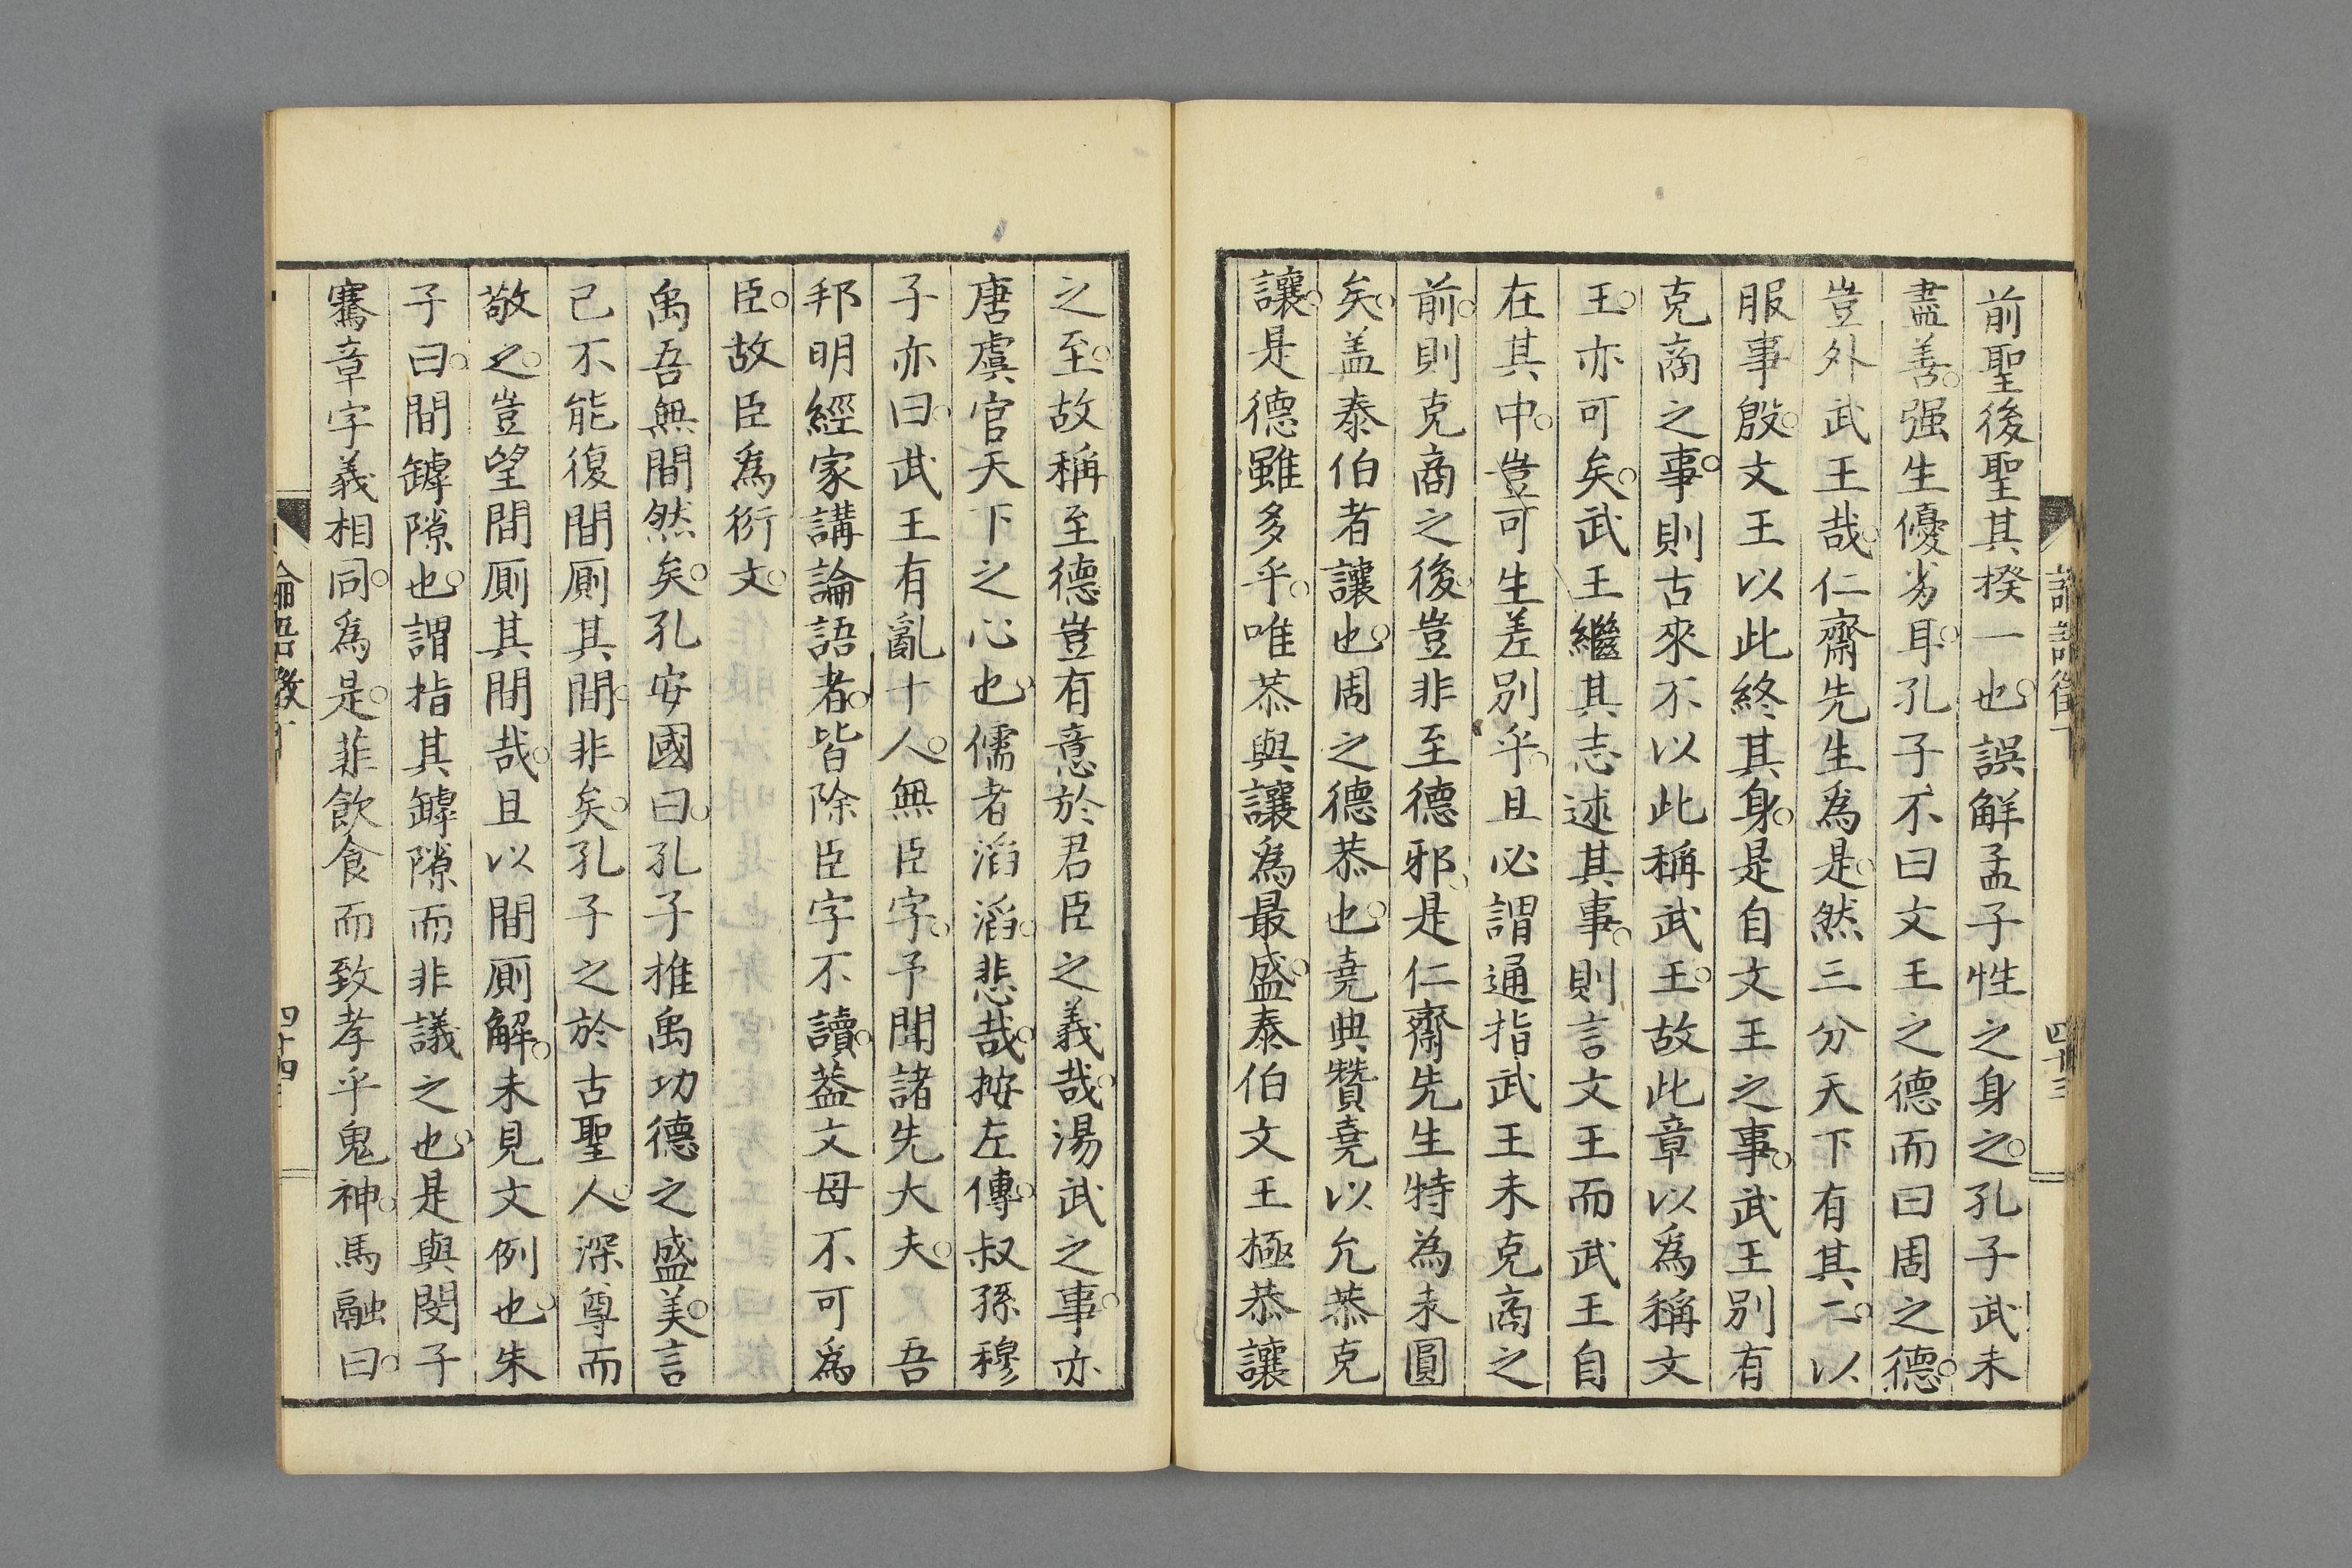 前聖後聖其揆一也誤解孟子性之身之孔子武未
盡善强生優劣耳孔子不曰文王之德而曰周之德
豈外武王哉仁齋先生爲是然三分天下有其二以
服事殷文王以此終其身是自文王之事武王別有
克商之事則古來不以此稱武王故此章以爲稱文
王亦可矣武王繼其志述其事則言文王而武王自
在其中豈可生差別乎且必謂通指武王未克商之
前則克商之後豈非至德邪是仁齋先生特為未圓
矣盖泰伯者讓也周之德恭也堯典贊堯以允恭克
讓是德雖多乎唯恭與讓爲最盛泰伯文王極恭讓
四十三
之至故稱至德豈有意於君臣之義哉湯武之事亦
唐虞官天下之心也儒者滔滔悲哉按左傳叔孫穆
子亦曰武王有亂十人無臣字予聞諸先大夫 吾
邦明經家講論語者皆除臣字不讀蓋文母不可爲
臣故臣爲衍文
禹吾無間然矣孔安國曰孔子推禹功德之盛美言
己不能復間厠其間非矣孔子之於古聖人深尊而
敬之豈望間厠其間哉且以間厠解未見文例也朱
子曰間罅隙也謂指其罅隙而非議之也是與閔子
騫章字義相同爲是菲飲食而致孝乎鬼神馬融曰
論語徵丁
四十四